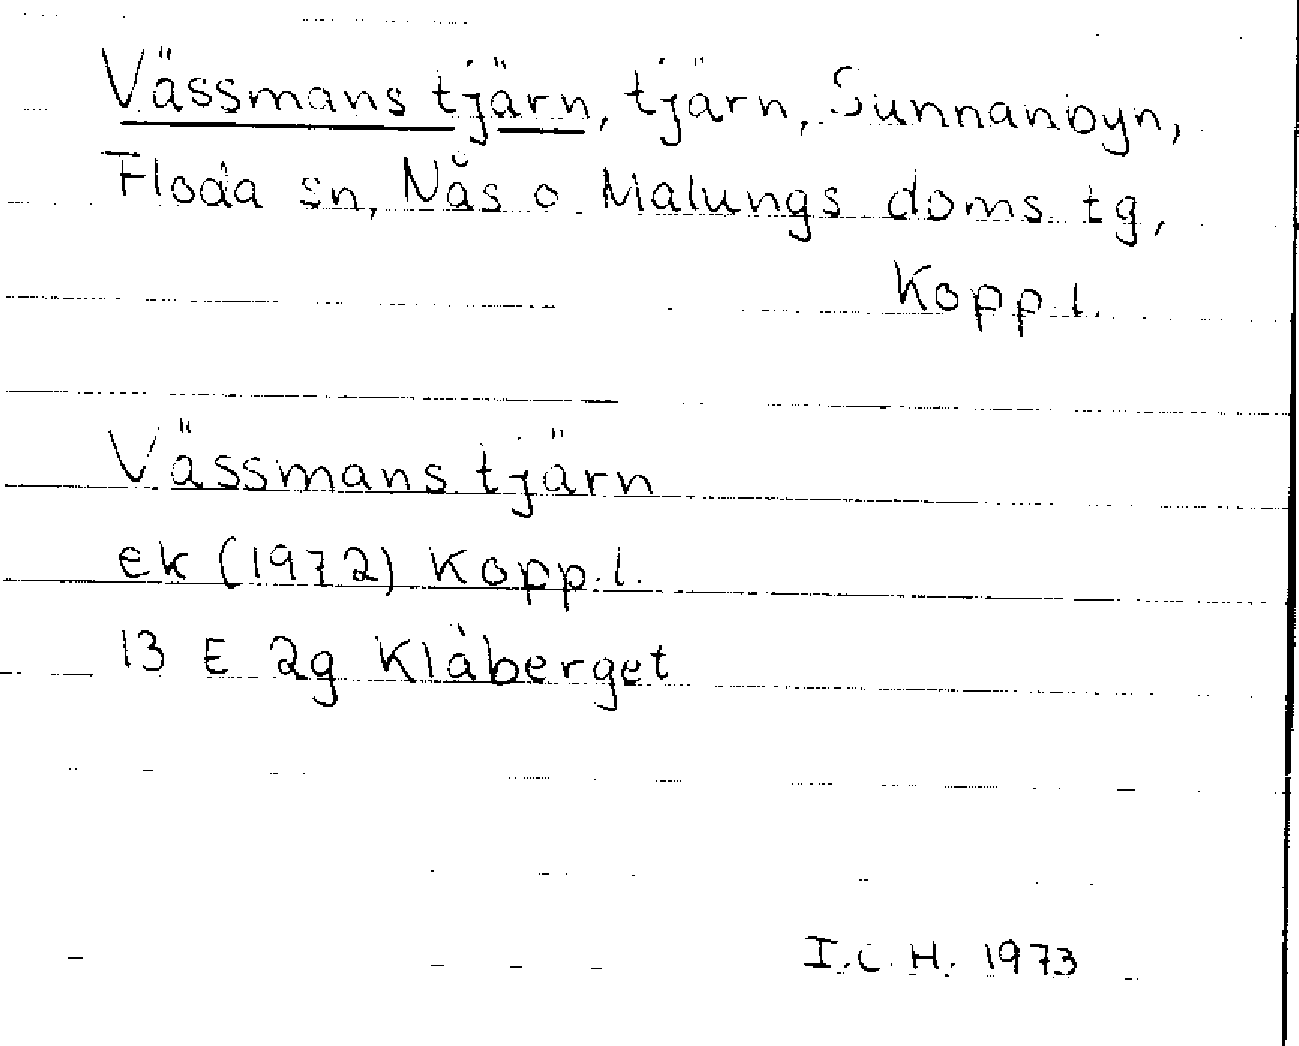 Vässmans tjärn, tjärn, Sunnanbyn,
Floda sn, Nås o Malungs doms.tg,
Kopp.l.
Vässmans tjärn
ek (1972) Kopp.l.
13 E 2g Klåberget
I.C.H. 1973